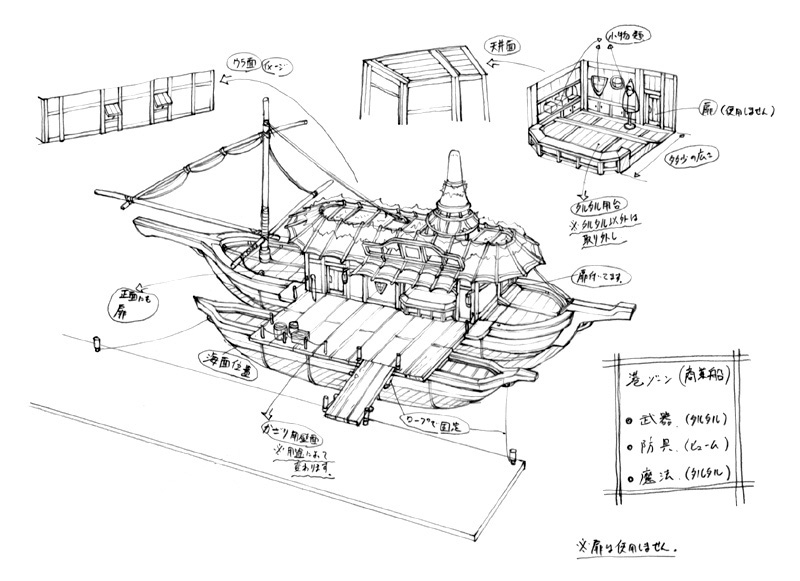 ウラ面 イメージ
天井面
小物類
扉 (使用しません)
タルタル用台
※タルタル以外は
取り外し
扉付いてます。
正面にも
扉
海面位置
ロープで固定
※用途によって
変わります。
港ゾーン (商業船)
武器 (タルタル)
防具 (ヒューム)
魔法 (タルタル)
※扉は使用しません。